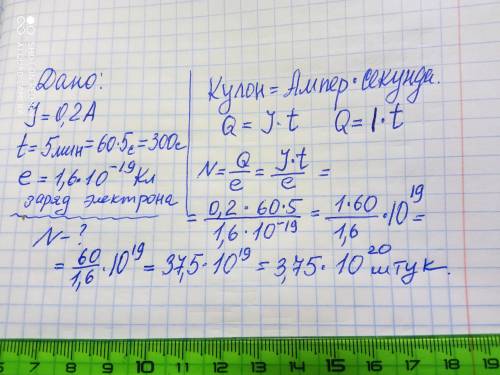 Дано:
J=0,2А
t=5мин=60·5с=300с
e=1,6·10⁻¹⁹Кл
заряд электрона
N-?
Кулон=Ампер·секунда.
Q=J·t Q=I·t
N=Q/e=J·t/e=
=0,2·60·5/1,6·10⁻¹⁹=1·60/1,6·10¹⁹=
=60/1,6·10¹⁹=37,5·10¹⁹=3,75·10²⁰ штук.
6 7 8 9 10 11 12 13 14 15 16 17 18 19